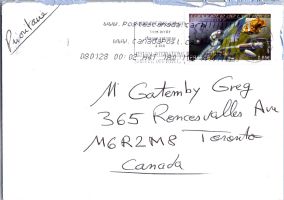 www.postescanada.ca
www.canadapost.ca
080128 00:02
M Gatemby Greg
365 Roncesvalles Ave
M6R2M8 Toronto
Canada